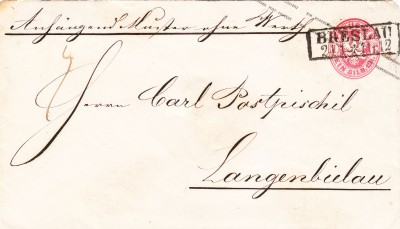 Anhängend Muster ohne Werth
BRESLAU
Herrn Carl Postpischil
Langenbielau